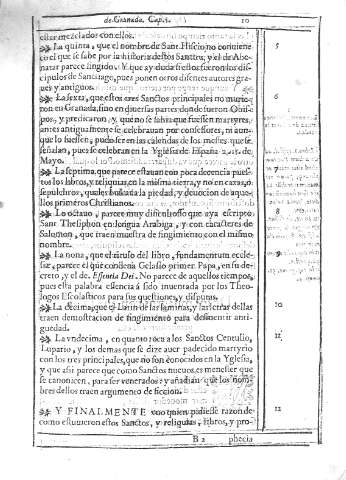 de Granada, Cap. 1. 10
estar mezclados con ellos.
La quinta, que el nombre de Sant Hiscio, no conuiene
con el que se sabe por la historia destos Sanctos, y el de Abe-
natar parece fingido. Y que ay duda si estos fueron los dis-
cipulos de Sanctiago, pues ponen otros differentes autores gra-
ues y antiguos.
5
La sexta, que estos tres Sanctos principales no murie-
ron en Granada, sino en diuersas partes donde fueron Obis-
pos, y predicaron, y que no se sabe que fuessen martyres,
antes antiguamente se celebrauan por confessores, ni aun-
que lo fuessen, pudo ser en las calendas de los meses que se
señalan, pues se celebran en la Yglesia de España a .15. de
Mayo.
6
La septima, que parece estauan con poca decencia pues-
tos los libros, y reliquias, en la misma tierra, y no en caxas, o
sepulchros, quales buscaria la piedad, y deuocion de aque-
llos primeros Christianos.
7
Lo octauo, parece muy difficultoso que aya escripto
Sant Thesiphon en lengua Arabiga, y con caracteres de
Salomon, que traen muestra de fingimiento con el mismo
nombre.
8
La nona, que el titulo del libro, fundamentum eccle-
siæ, parece el que condena Gelasio primer Papa, en su de-
creto, y el de Essentia Dei. No parece de aquellos tiempos,
pues esta palabra essencia à sido inuentada por los Theo-
logos Escolasticos para sus questiones, y disputas.
9
La decima, que el Latin de las laminas, y las letras dellas
traen demostracion de fingimiento para desmentir anti-
guedad.
10
La vndecima, en quanto toca a los Sanctos Centulio,
Lupario, y los demas que se dize auer padecido martyrio
con los tres principales, que no son conocidos en la Yglesia,
y que assi parece que como Sanctos nueuos, es menester que
se canonicen, para ser venerados: y añadian que los nom-
bres dellos traen argumento de ficcion.
11
Y FINALMENTE vuo quien pidiesse razon de
como estuuieron estos Sanctos, y reliquias, libros, y pro-
12
B 2 phecia